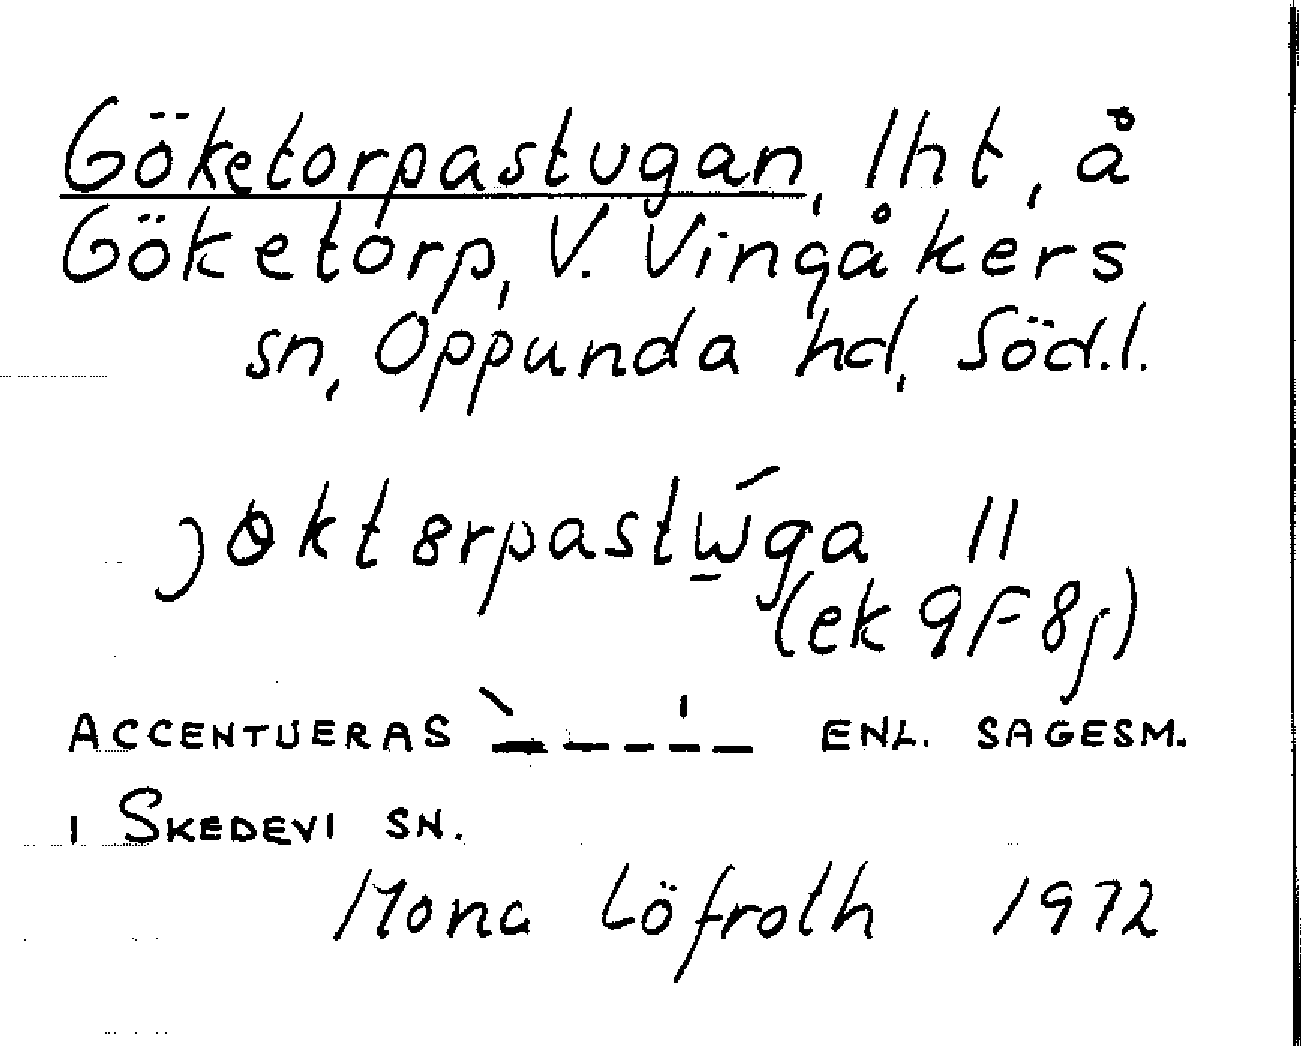 Göketorpastugan, lht, å
Göketorp, V. Vingåkers
sn, Oppunda hd, Söd.l.
ȷøkt8rpastẃ̠ga ||
(ek 9F8j)
ACCENTUERAS `– – – –́ – ENL. SAGESM.
I SKEDEVI SN.
Mona Löfroth 1972